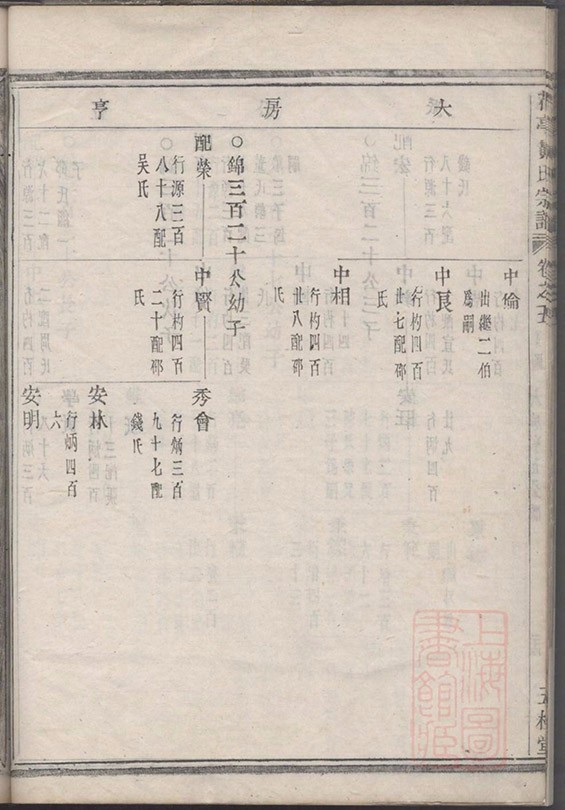 大房亨
中倫
出繼二伯
爲嗣
中良
行杓四百
廿七配邵
氏
中相
行杓四百
廿八配邵
氏
○錦三百二十公幼子
配榮
行源三百
八十八配
吳氏
中賢
行杓四百
二十配邵
氏
秀會
行炳三百
九十七配
錢氏
安林
行炳四百
六
安明
氏宗譜
卷之五
五桂堂
上海圖書館藏